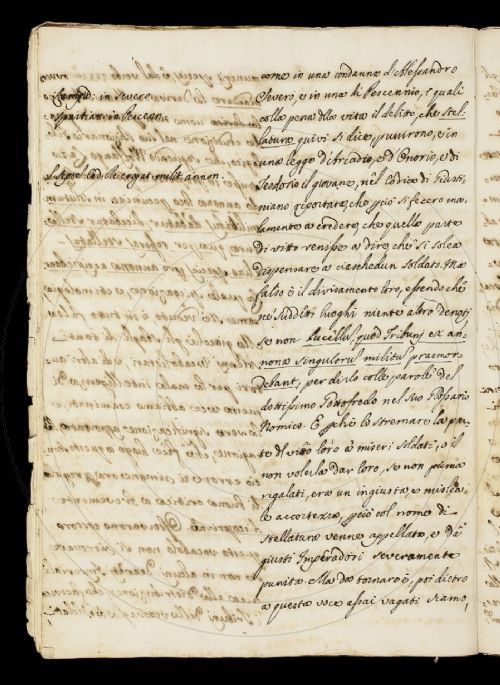 Lamprid: in Severo
Spartian: in Pescen:
L. signa Cod. de erogat. milit. annon.
come in una condanna d'Alessandro
Severo, e in una di Pescennio, i quali
colla pena della vita il delitto, che stel-
latura quivi si dice, punirono, e in
una legge d'Arcadio, e d'Onorio, e di
Teodosio il giovane, nel Codice di Giusti-
niano riportata, che poi si fecero ma-
lamente a credere, che quella parte
di vitto venisse a dire, che si solea
dispensare a ciaschedun soldato. Ma
falso è il divisamento loro, essendo che
ne' sudditi luoghi niente altro denoti,
se non bucellum, quod Tribuni ex an-
nona singulorum militum praemor-
debant, per dirlo colle parole del
dottissimo Gottofredo nel suo Glossario
Nomico. E perchè lo stremare la par-
te del vitto loro a' miseri soldati, e il
non volerla dar loro, se non prima
regalati, era un ingiusta, e mislea-
le accortezza, perciò col nome di
stellatura venne appellata, e da'
giusti Imperadori severamente
punita. Ma da tornare è, poi dietro
a questa voce assai vagati siamo,